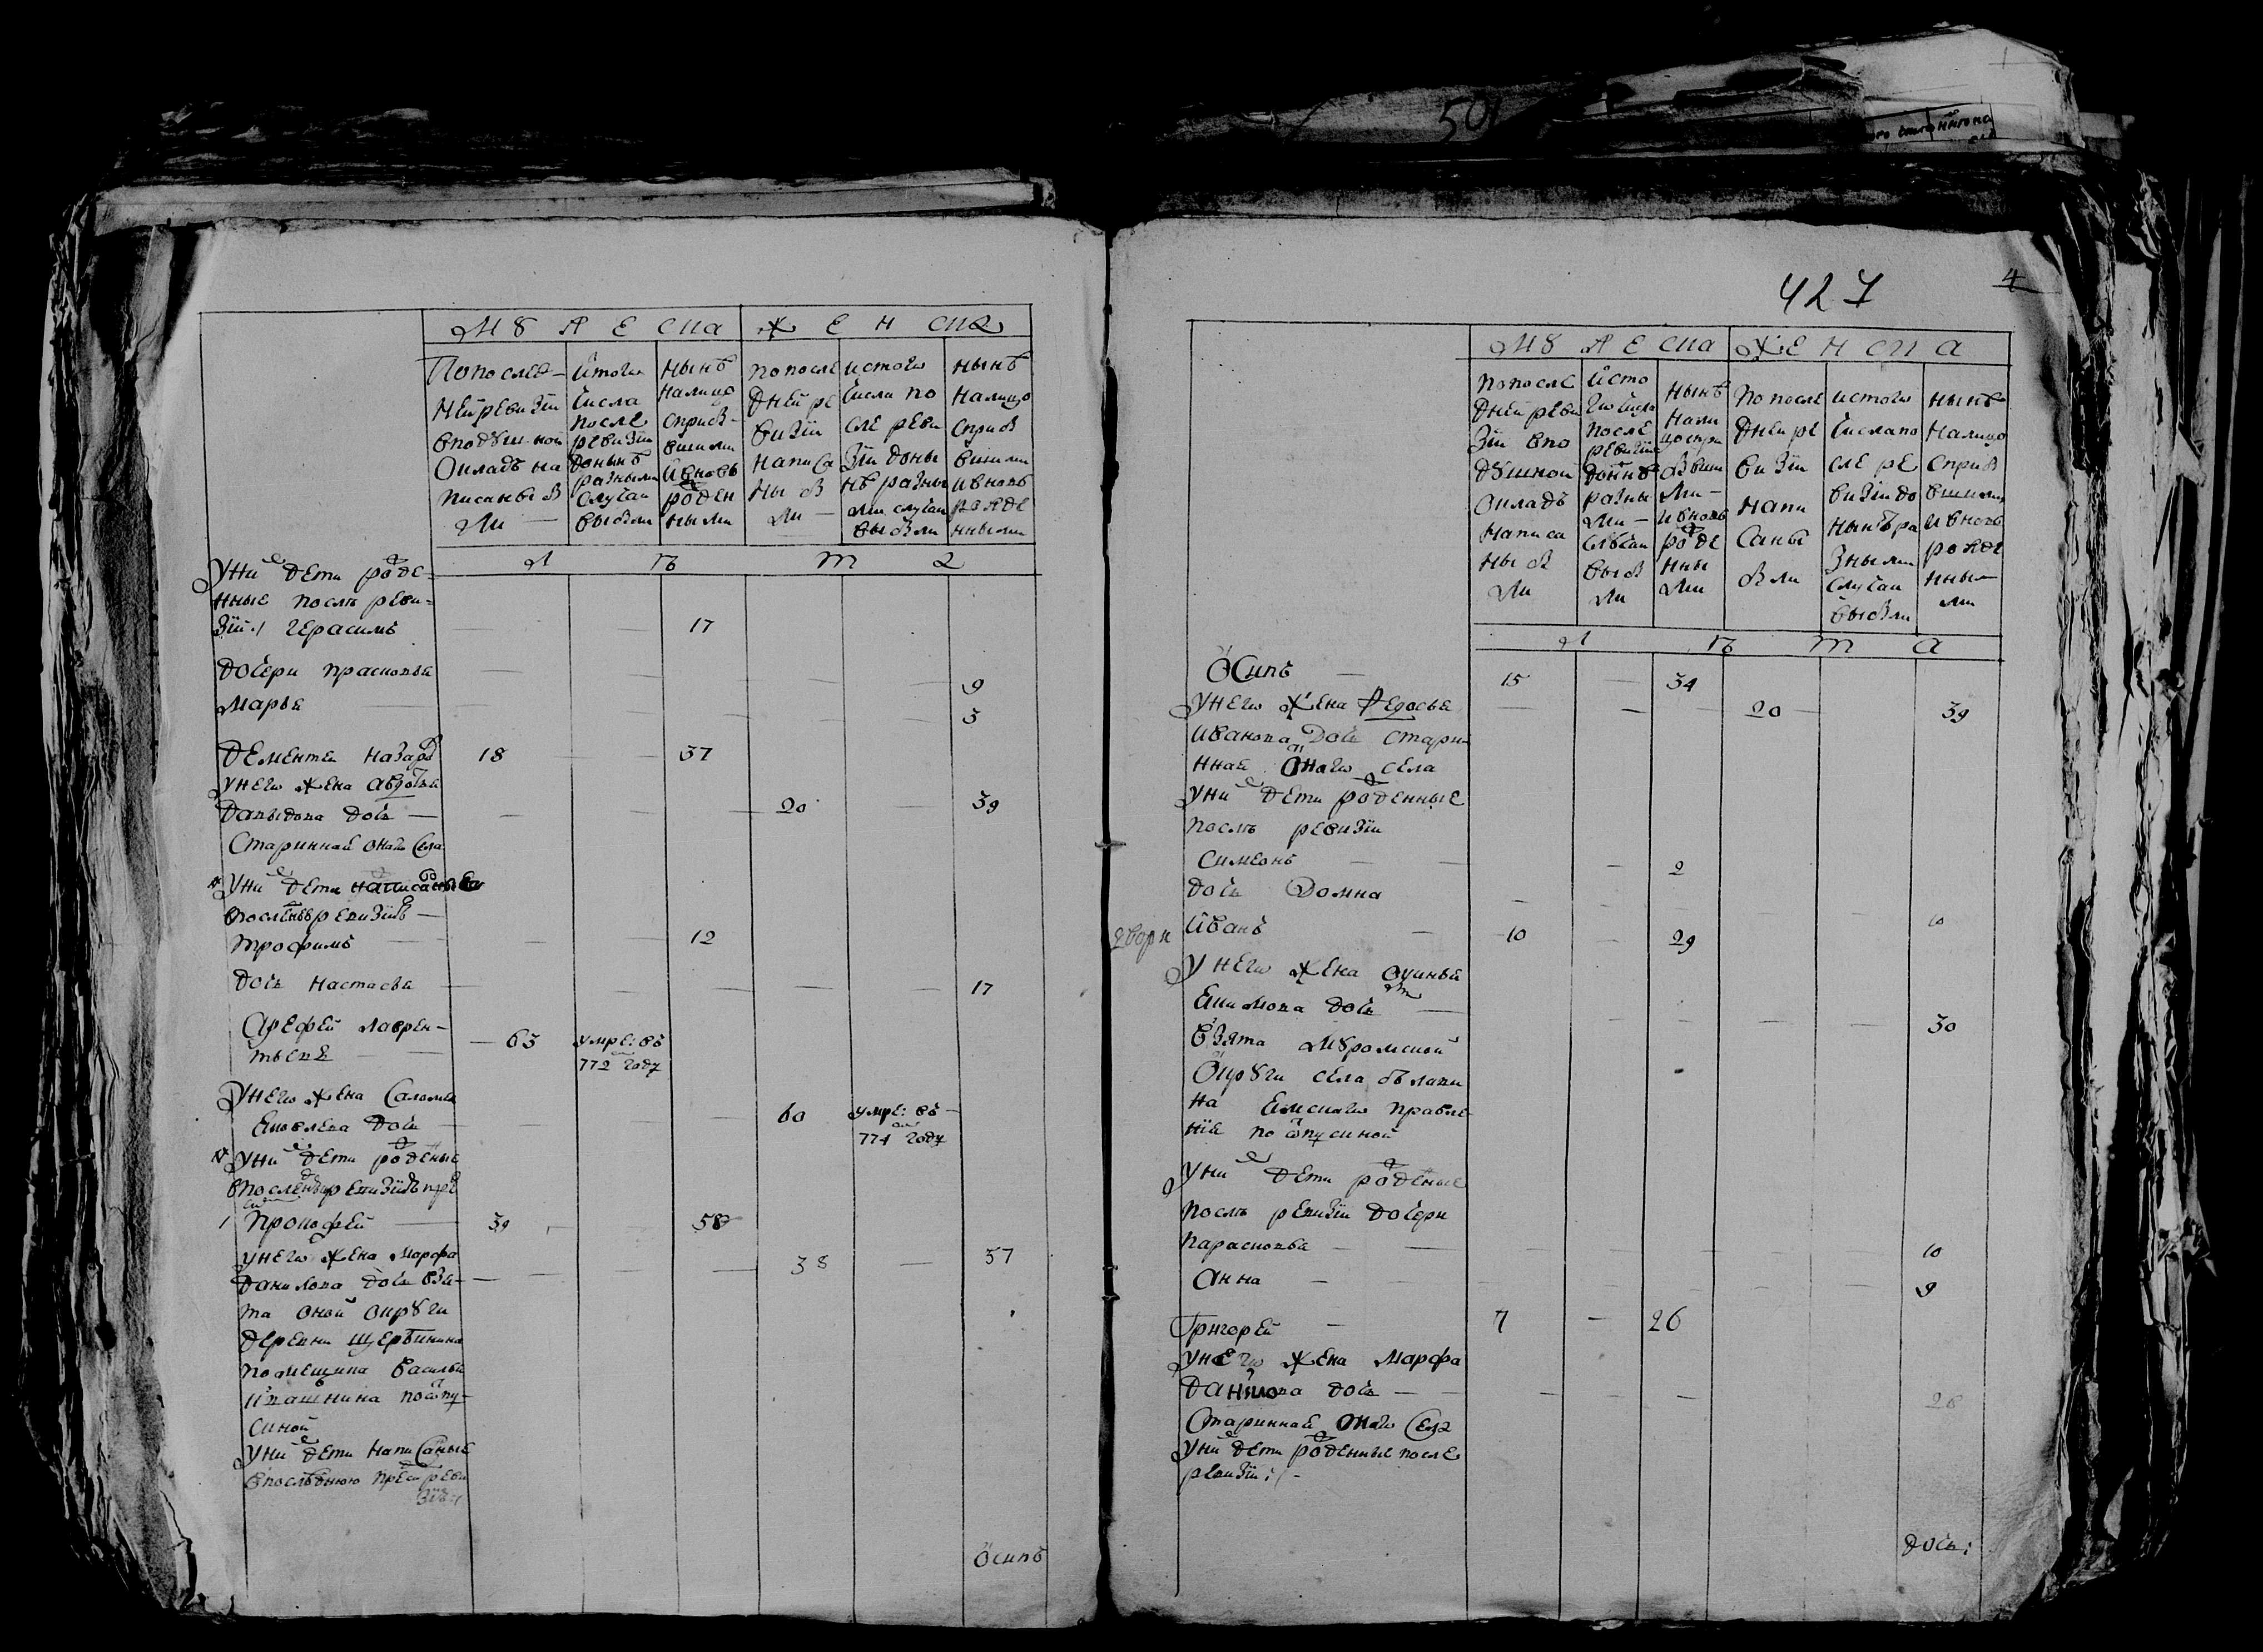 501
427
4
МȢЖЕСКА ЖЕНСКА
Попослед-
ней ревизіи
вподȢшной
окладъ на
писаны б
ли —
истого
числа
после
ревизіи
донынѣ
разными
случаи
выбыли
нынѣ
налицо
сприб-
вшими
ивновь
рожден
ными
попосле
дней ре
визіи
написа
ны б
ли —
истого
числа по
сле реви
зіи доны
нѣ разны
ми случаи
выбыли
нынѣ
налицо
сприб
вшими
ивновь
рожде
нными
Л ѣ т а
уних дети рожде-
нные послѣ реви-
зіи :/ Герасимъ — — 17
дочери прасковья — — — — — 9
Марья — — — — 3
дементеи назаров 18 — 37
унего жена авдотья
давыдова дочь — — — 20 — 39
Стариннаѧ онаго села
уних дети написаные
впоследней ревизіи —
трофимъ — — — 12
дочь настасья — — — — — 17
Арефеи лаврен-
тьевъ — — 63 умре: въ
772 году
унего жена Саломея
Яковлева дочь — — — 60 умре: въ —
774 году
уних дети рожденые
впоследней ревизіи
1 Прокофеи — 39 — 58
унего жена марфа
данилова дочь взя- — — — — 38 — 57
та оной округи
деревни щербинина
помещика василья
кашнина по отпу-
скной
уних дети написаные
впоследнюю пред сим реви
зию :/
Осипъ
МȢЖЕСКА ЖЕНСКА
попосле
дней реви
зіи впо
дȢшной
окладъ
написа
ны б
ли
исто
го числа
после
ревизіи
донынѣ
разны
ми —
слȢчаи
выб
ли
нынѣ
нали
цо спри
бвши
ми —
ивновь
рожде
нны
ми
по после
дней ре
визіи
напи
саны
бли
истого
числа по
сле ре
визіи до
нынѣ ра
зными
случаи
выбыли
нынѣ
налицо
сприб
вшими
ивновь
рожде
нны-
ми
Л ѣ т а
Осипъ — 15 — 34
унего жена Федосья — — — 20 — 39
Иванова дочь стари-
нная онаго села
уних дети рожденные
послѣ ревизіи
Симеонъ — — — 2
дочь Домна — — — — — 10
двори Иванъ — 10 — 29
унего жена акулина
Екимова дочь — — — — — — 30
взята мȢромской
округи села
на Емскаго правле
ния по отпускной
уних дети рожденые
послѣ ревизіи дочери
парасковья — — — — — 10
анна — — — — — 9
Григореи — 7 — 26
унего жена марфа
данилова дочь — — — — — 28
Стариннаѧ онаго села
уних дети рожденные после
ревизіи :/ -
дочь: